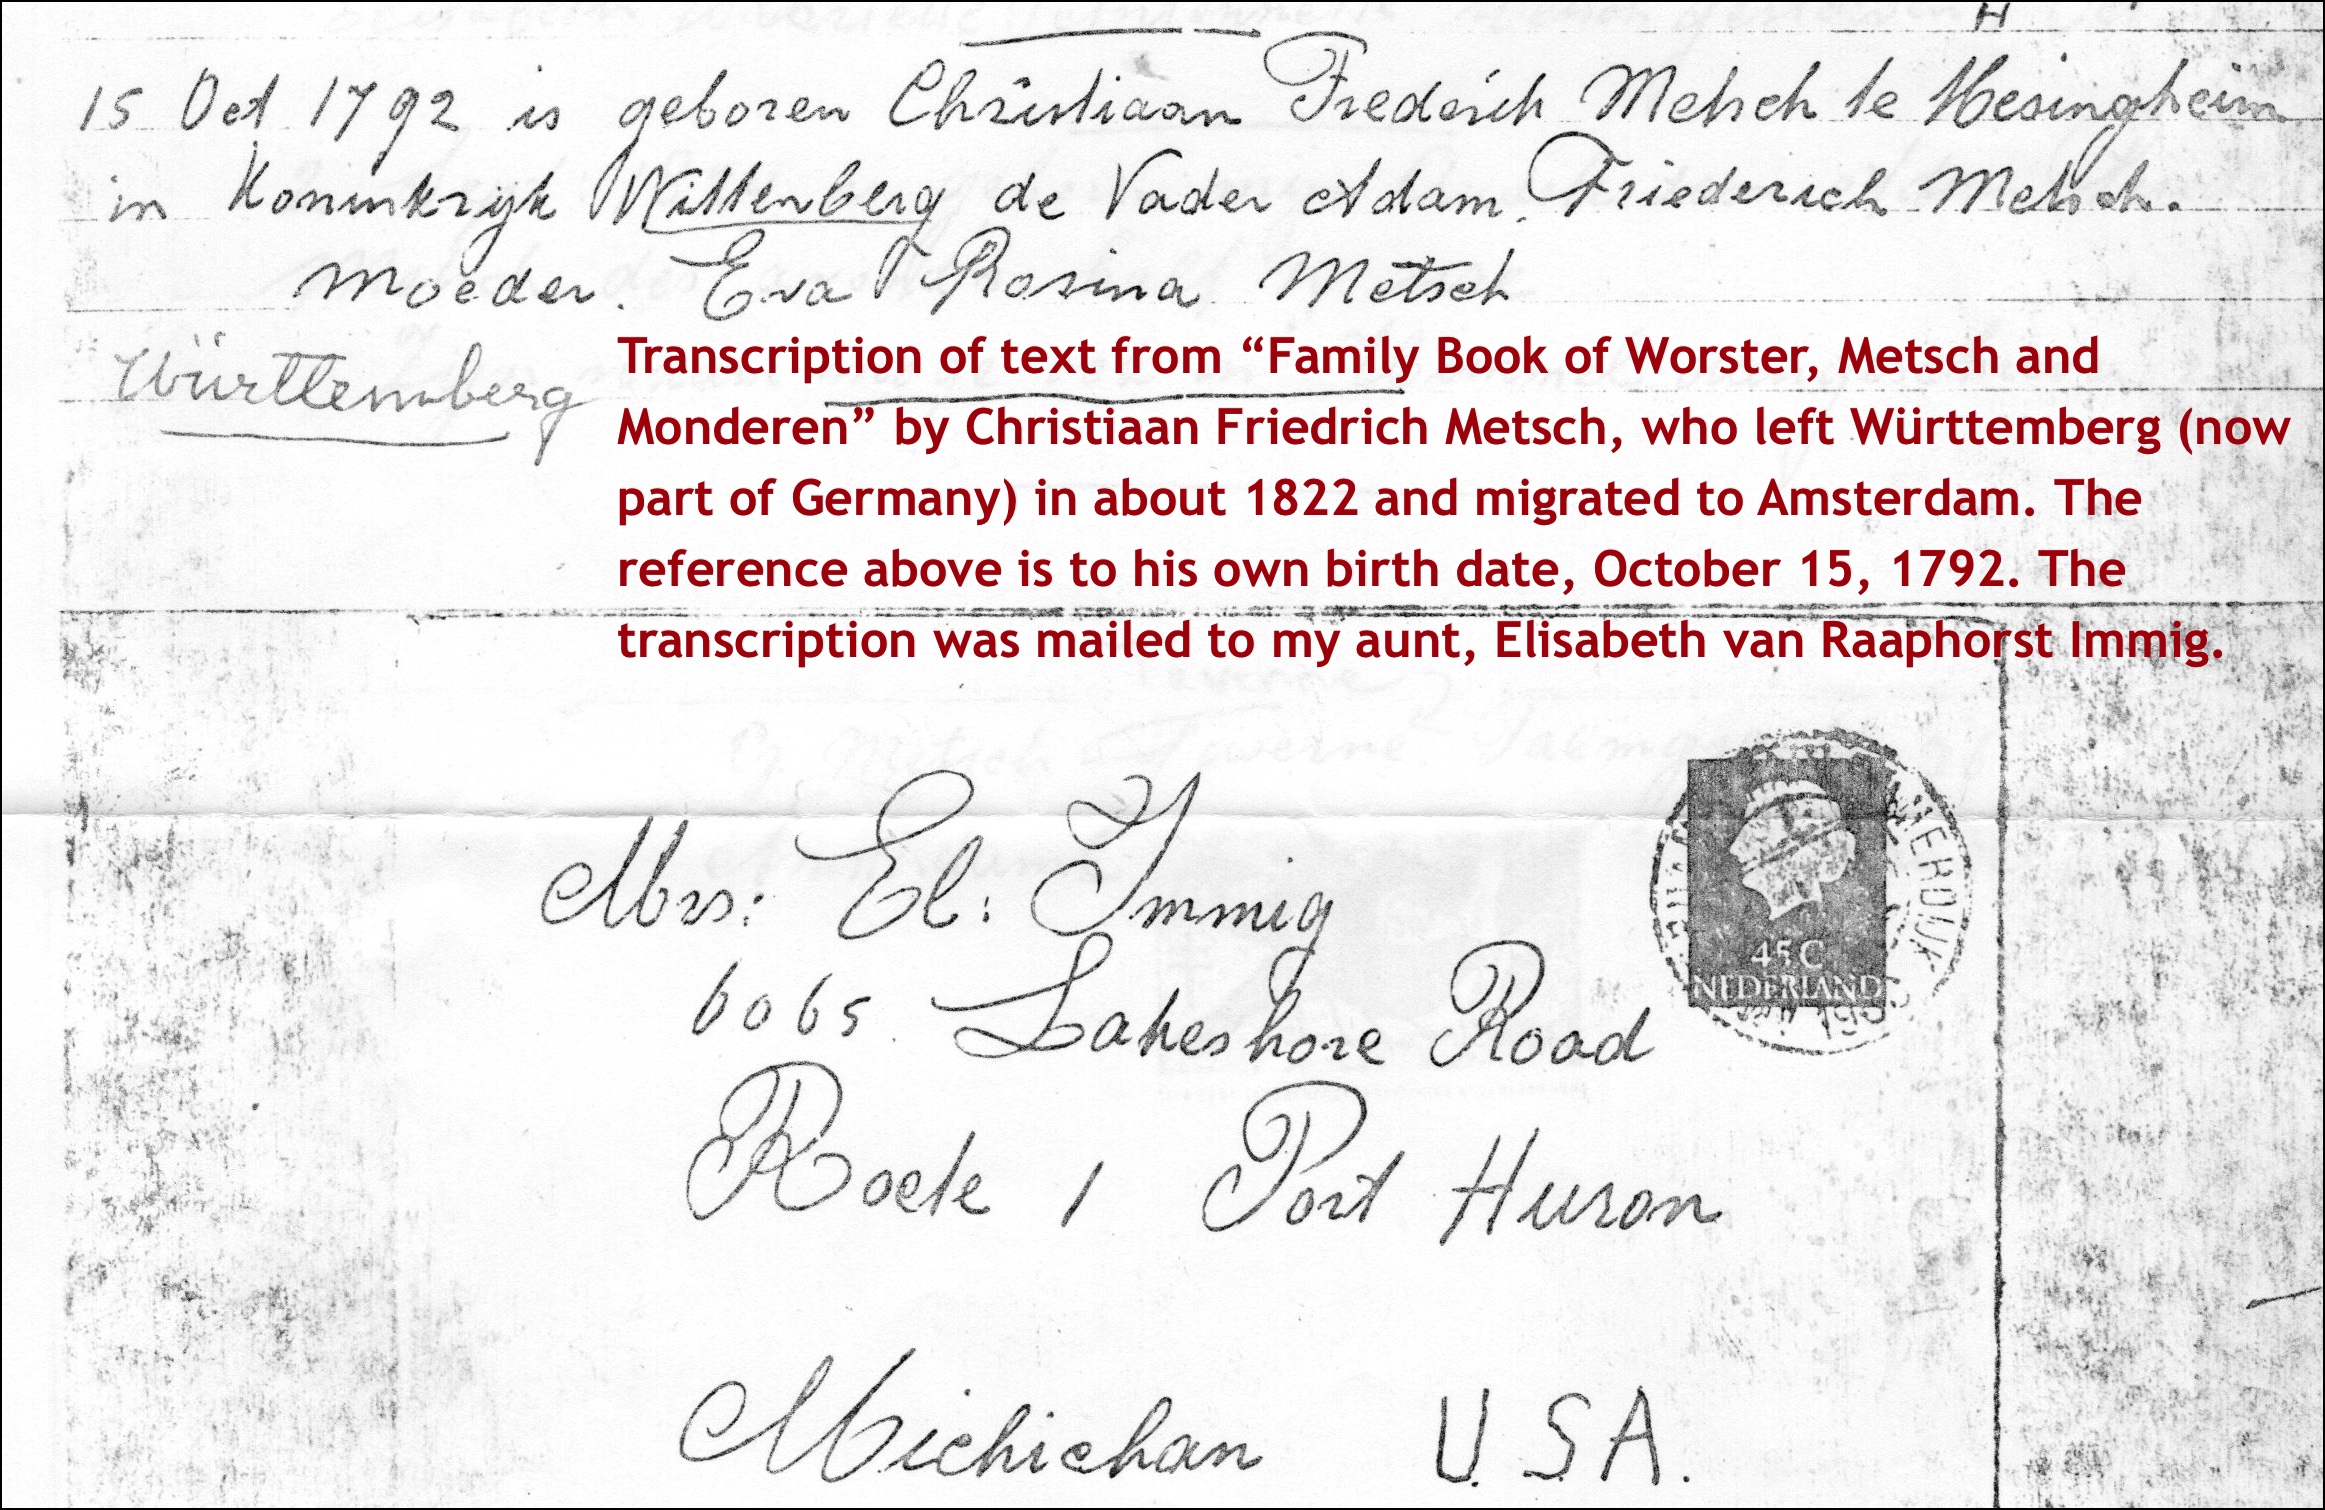 H
15 Oct 1792 is geboren Christiaan Frederich Metsch te Hesingheim
in Koninkrijk Wittenberg de Vader Adam Friederich Metsch.
Moeder. Eva Rosina Metsch
Württemberg
Transcription of text from “Family Book of Worster, Metsch and
Monderen” by Christiaan Friedrich Metsch, who left Württemberg (now
part of Germany) in about 1822 and migrated to Amsterdam. The
reference above is to his own birth date, October 15, 1792. The
transcription was mailed to my aunt, Elisabeth van Raaphorst Immig.
Mrs: El: Immig
6065 Lakeshore Road
45 C
NEDERLAND
Roete 1 Port Huron
Michichan U.S.A.